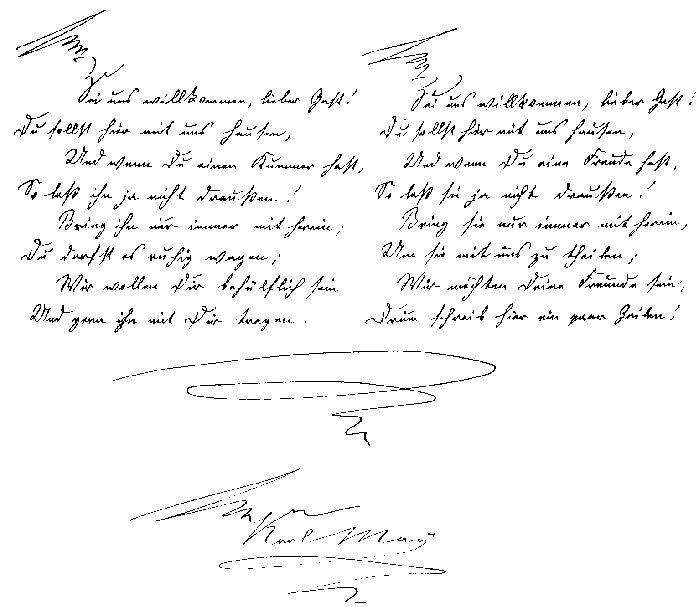 Sei uns willkommen, lieber Gast!
Du sollst hier mit uns hausen,
Und wenn Du einen Kummer hast,
So laß ihn ja nicht draußen!
Bring ihn nur immer mit herein;
Du darfst es ruhig wagen;
Wir wollen Dir behülflich sein
Und gern ihn mit Dir tragen.
Sei uns willkommen, lieber Gast!
Du sollst hier mit uns hausen,
Und wenn Du eine Freude hast,
So laß sie ja nicht draußen!
Bring sie nur immer mit herein,
Um sie mit uns zu theilen;
Wir möchten Deine Freunde sein,
Drum schreib hier ein paar Zeilen!
Karl May